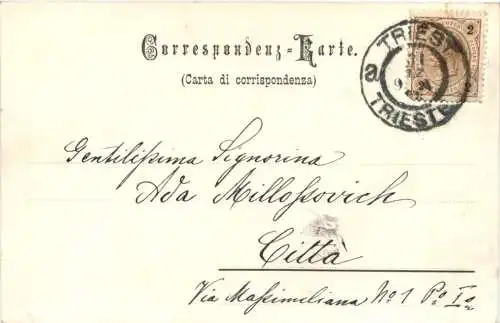 Correspondenz-Karte.
(Carta di corrispondenza)
2
TRIEST
a
TRIESTE
Gentilissima Signorina
Ada Millossovich
Città
Via Massimiliana Nº 1 Pº Iº